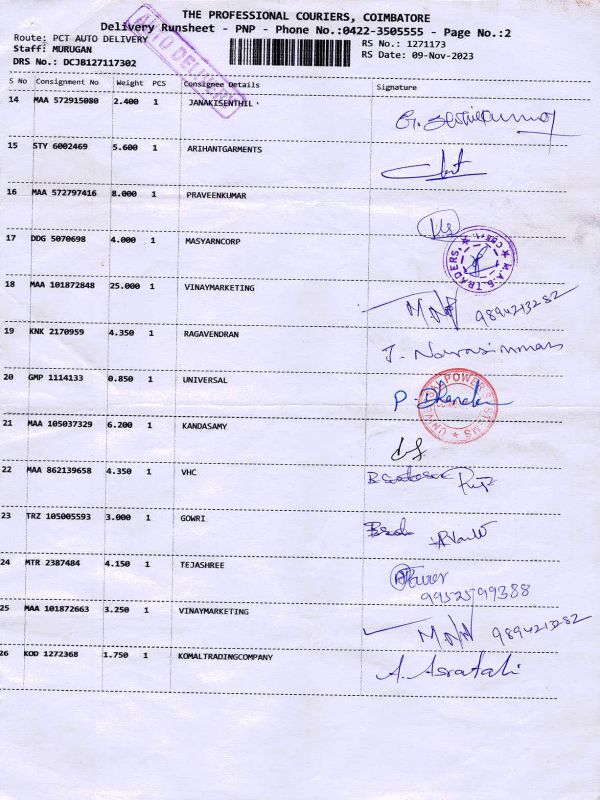 THE PROFESSIONAL COURIERS, COIMBATORE
Delivery Runsheet - PNP - Phone No.:0422-3505555 - Page No.:2
Route: PCT AUTO DELIVERY
RS No.: 1271173
Staff: MURUGAN
RS Date: 09-Nov-2023
DRS No.: DCJB127117302
AUTO DELIVERY
S No Consignment No Weight PCS Consignee Details Signature
14 MAA 572915080 2.400 1 JANAKISENTHIL
15 STY 6002469 5.600 1 ARIHANTGARMENTS
16 MAA 572797416 8.000 1 PRAVEENKUMAR
17 DDG 5070698 4.000 1 MASYARNCORP
M.A.S. TRADERS, CBE-1.
18 MAA 101872848 25.000 1 VINAYMARKETING 9894213282
19 KNK 2170959 4.350 1 RAGAVENDRAN
20 GMP 1114133 0.850 1 UNIVERSAL
UNIVERSAL POWER SYSTEMS
21 MAA 105037329 6.200 1 KANDASAMY
22 MAA 862139658 4.350 1 VHC
23 TRZ 105005593 3.000 1 GOWRI
24 MTR 2387484 4.150 1 TEJASHREE
9952599388
25 MAA 101872663 3.250 1 VINAYMARKETING 9894213282
26 KOD 1272368 1.750 1 KOMALTRADINGCOMPANY